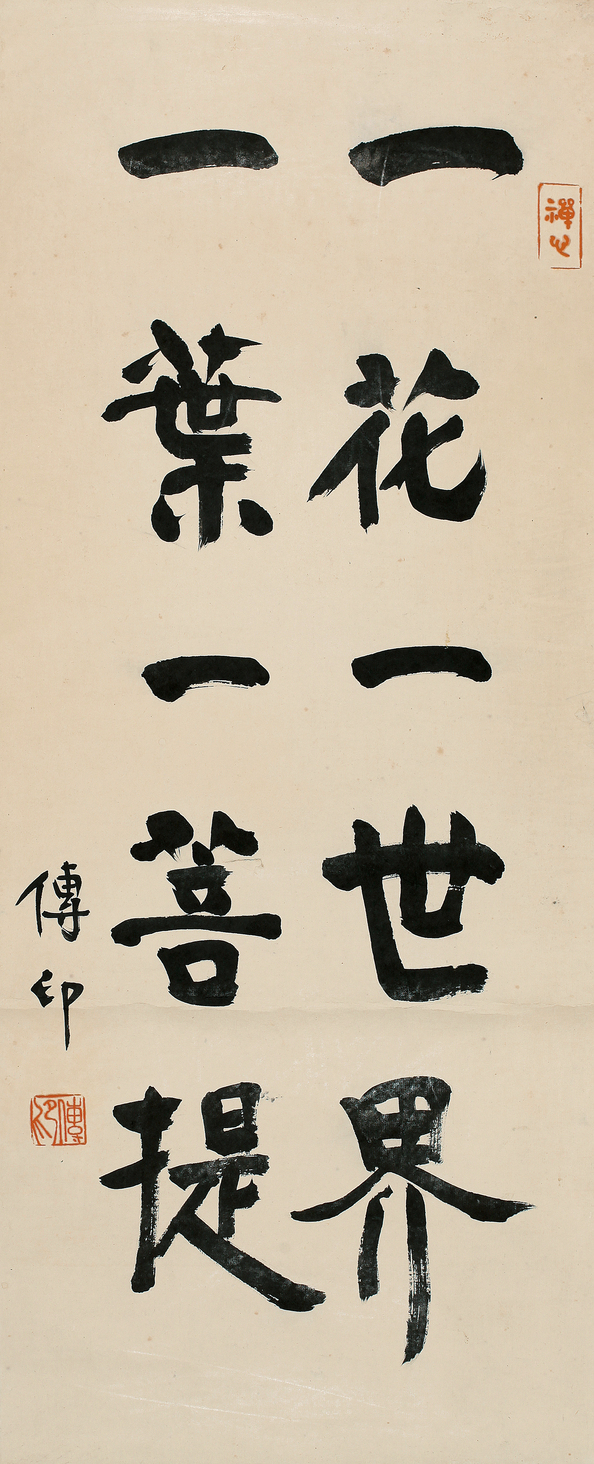 禪心
一花一世界
一葉一菩提
傳印
傳印